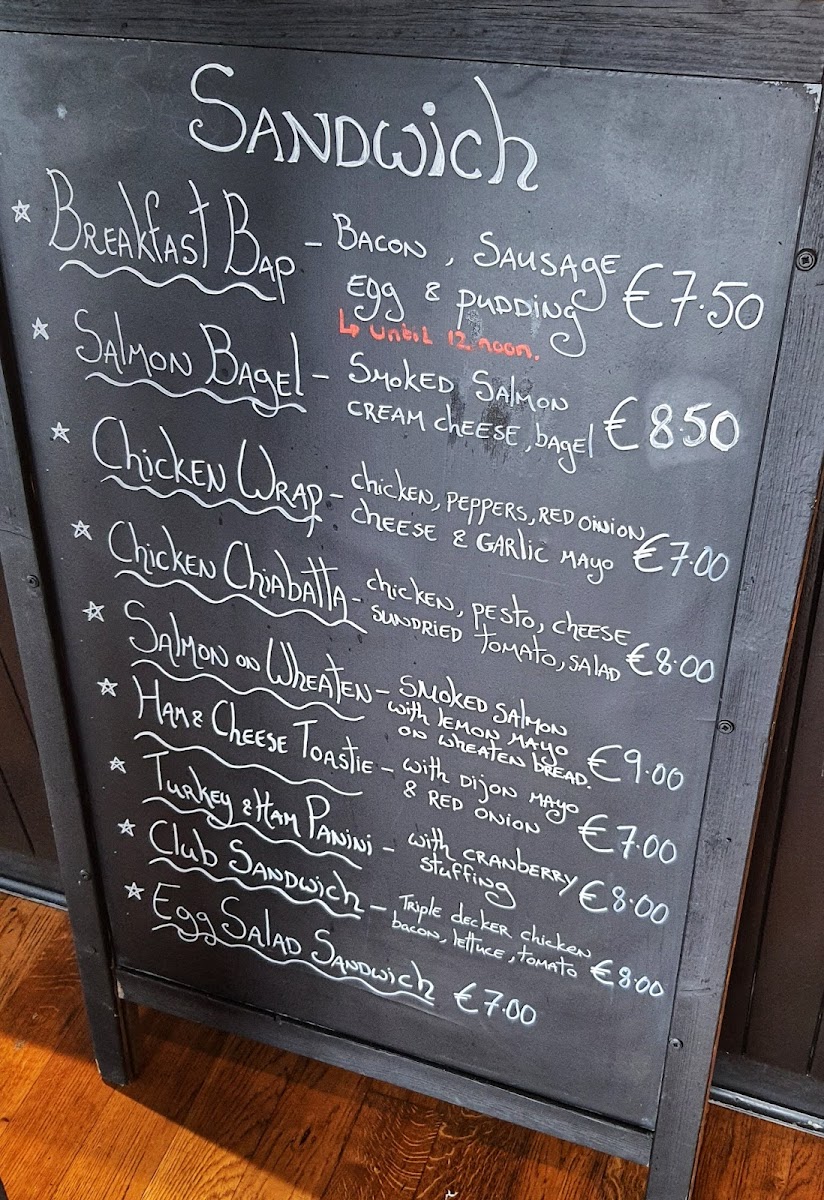 SANDWich
☆ BREAKfAST BAP - BACON, SAUSAgE
Egg & pudding €7.50
↳ until 12 noon.
☆ SAlMON BAgEl - SMOKED SAlMON
CREAM cHEESE, bagEl €8.50
☆ ChicKEN WRAP - chicken, PEPPERS, RED OINION
cHEESE & GARlic MAYO €7.00
☆ ChicKEN ChiABATTA - chicken, PESTO, cHEESE
SUNDRIED tOMATO, SALAD €8.00
☆ SAlMON ON WHEATEN - SMOKED SAlMON
with lEMON MAYO
ON WHEATEN bREAD. €9.00
☆ HAM & CHEESE TOASTiE - with DIJON MAYO
& RED ONION €7.00
☆ TURKEY & HAM PANiNi - with CRANbERRY
stuffing €8.00
☆ Club SANDWich - TRiplE dEckER chickEN
bacon, lEttucE, tOMATO €8.00
☆ Egg SAlAD SANDWich €7.00